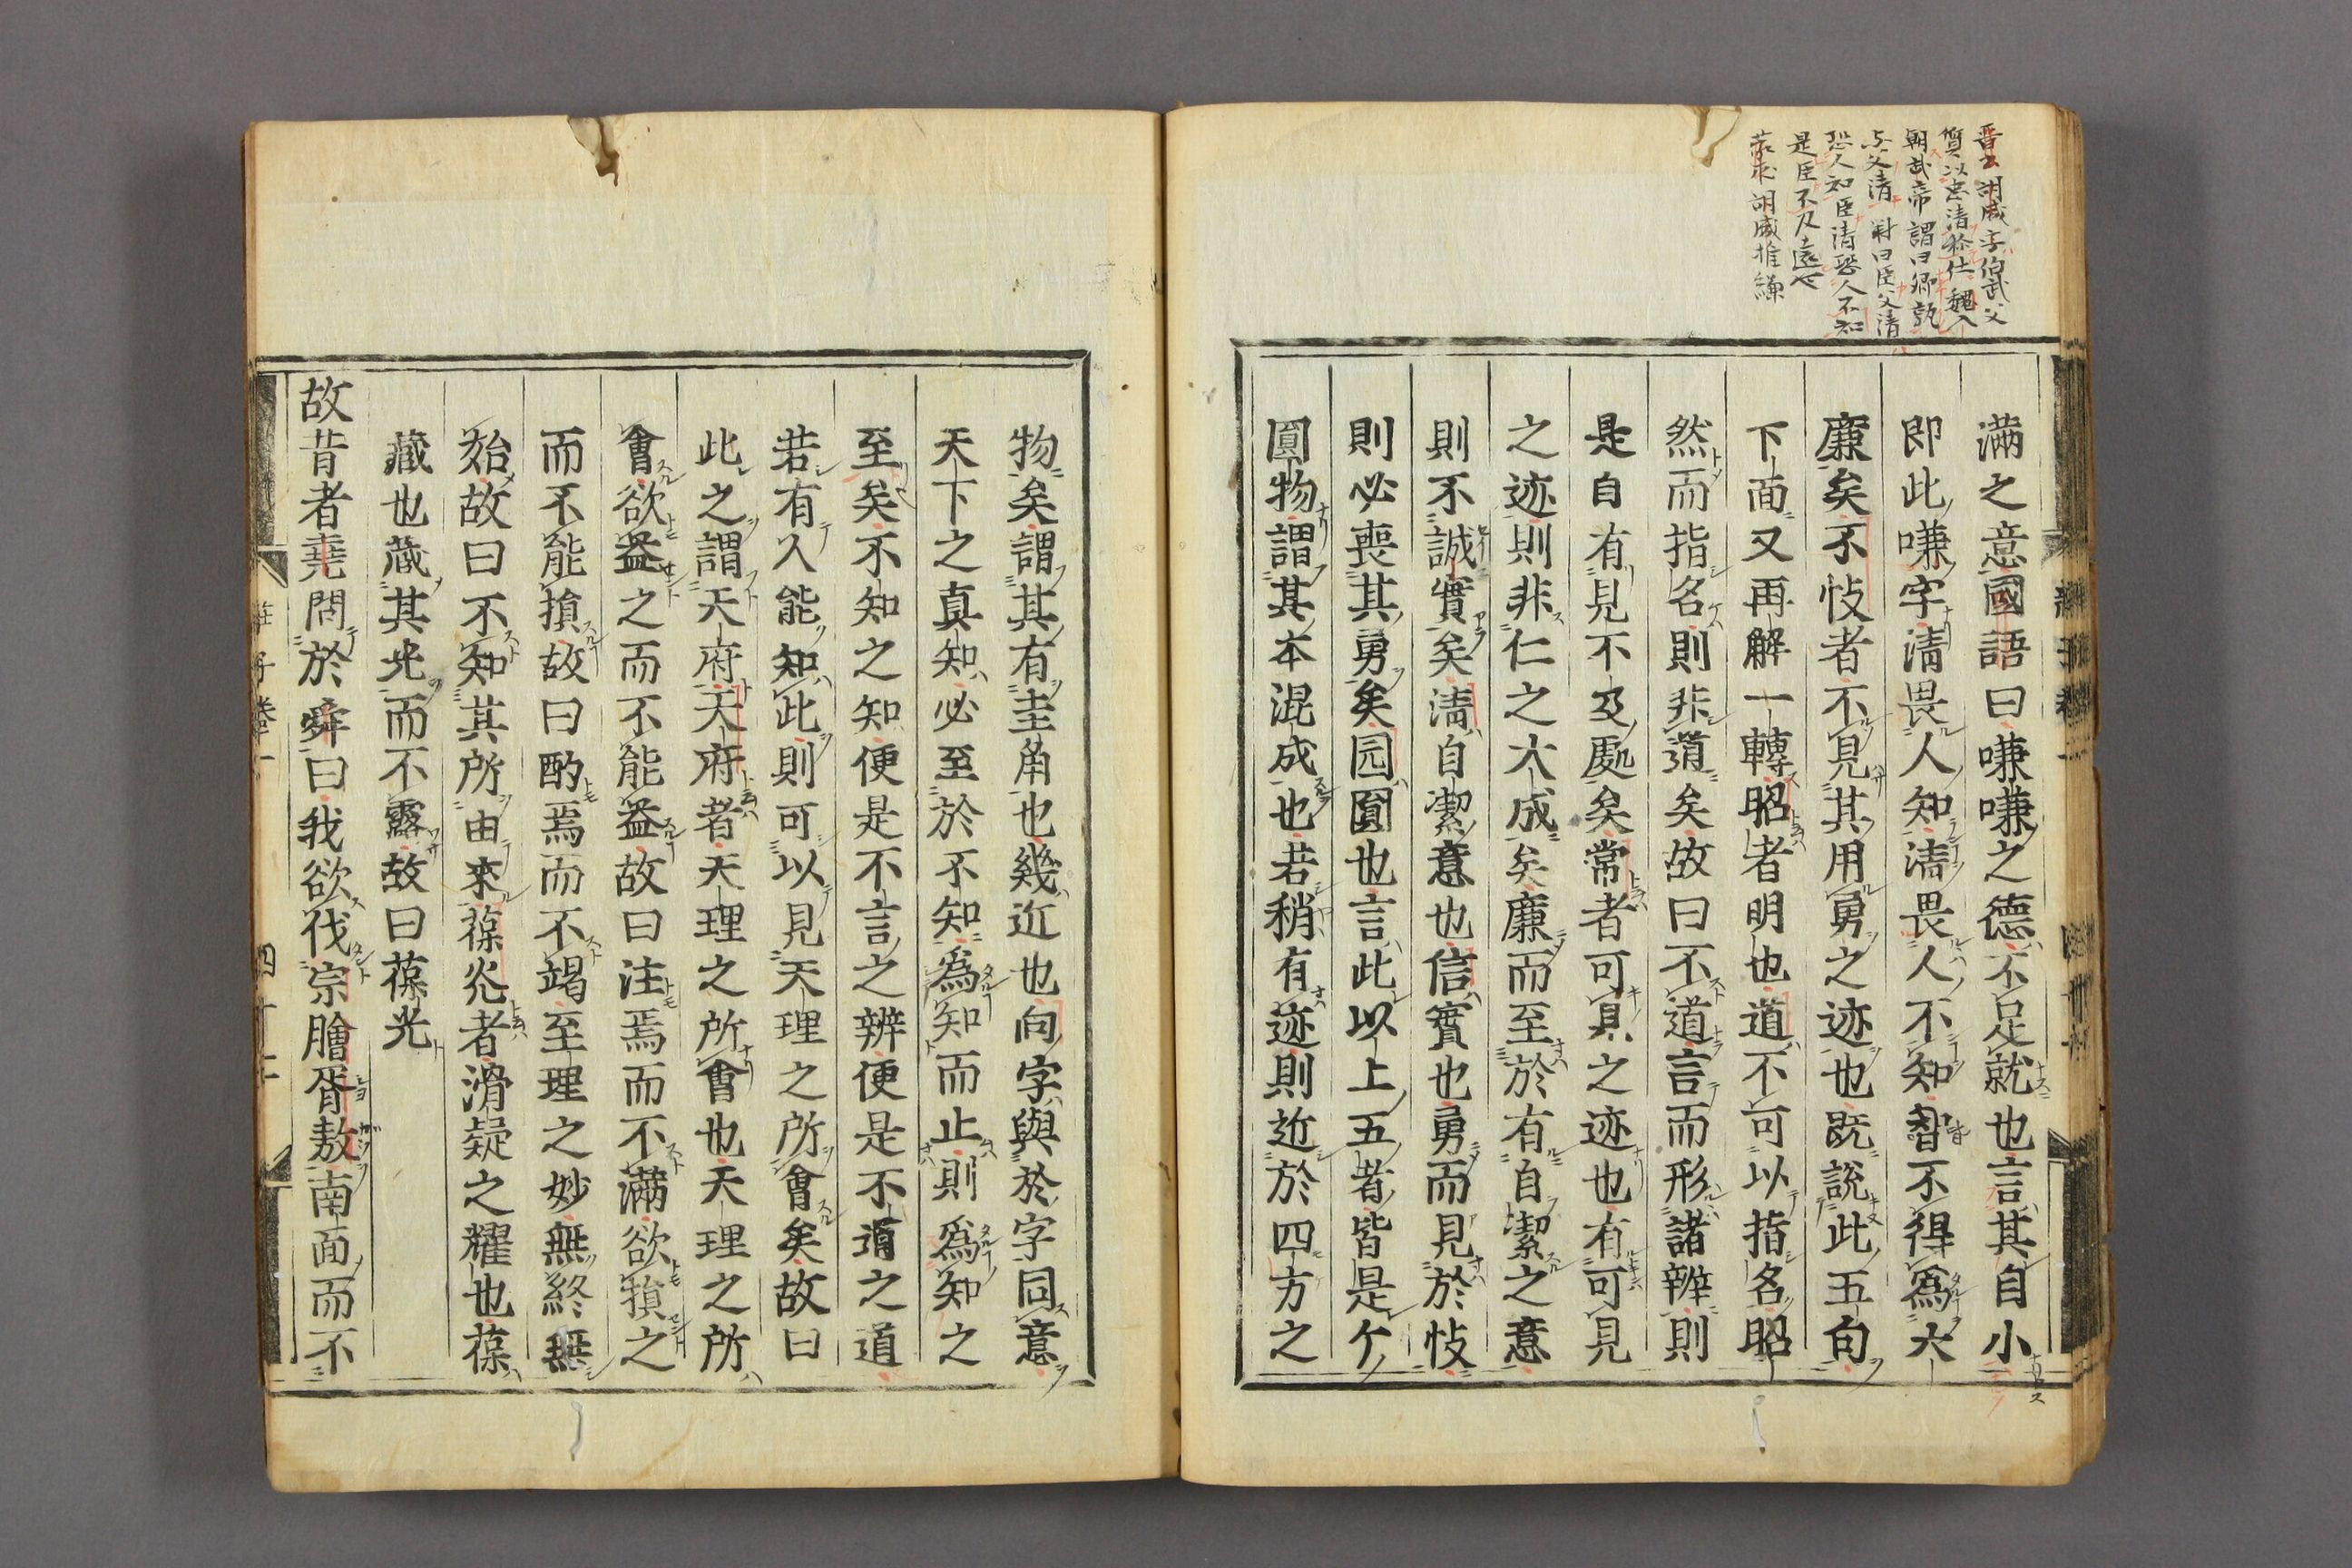 晋書胡威字伯武父
質以忠清称仕魏入
朝武帝謂曰卿孰
与父清対曰臣父清
恐人知臣清恐人不知
是臣不及遠也
蒙求胡威推縑
満之意國語曰嗛嗛之德不足就也言其自小
即此嗛字清畏人知清畏人不知皆不得爲大
廉矣不忮者不見其用勇之迹也既說此五句
下面又再解一轉昭者明也道不可以指名昭
然而指名則非道矣故曰不道言而形諸辨則
是自有見不及處矣常者可見之迹也有可見
之迹則非仁之大成矣廉而至於有自潔之意
則不誠實矣清自潔意也信實也勇而見於忮
則必喪其勇矣园圓也言此以上五者皆是个
圓物謂其本混成也若稍有迹則近於四方之
物矣謂其有圭角也幾近也向字與於字同意
天下之真知必至於不知爲知而止則爲知之
至矣不知之知便是不言之辨便是不道之道
若有人能知此則可以見天理之所會矣故曰
此之謂天府天府者天理之所會也天理之所
會欲益之而不能益故曰注焉而不滿欲損之
而不能損故曰酌焉而不竭至理之妙無終無
始故曰不知其所由來葆光者滑疑之耀也葆
藏也藏其光而不露故曰葆光
故昔者堯問於舜曰我欲伐宗膾胥敖南面而不
莊子卷一
四十二